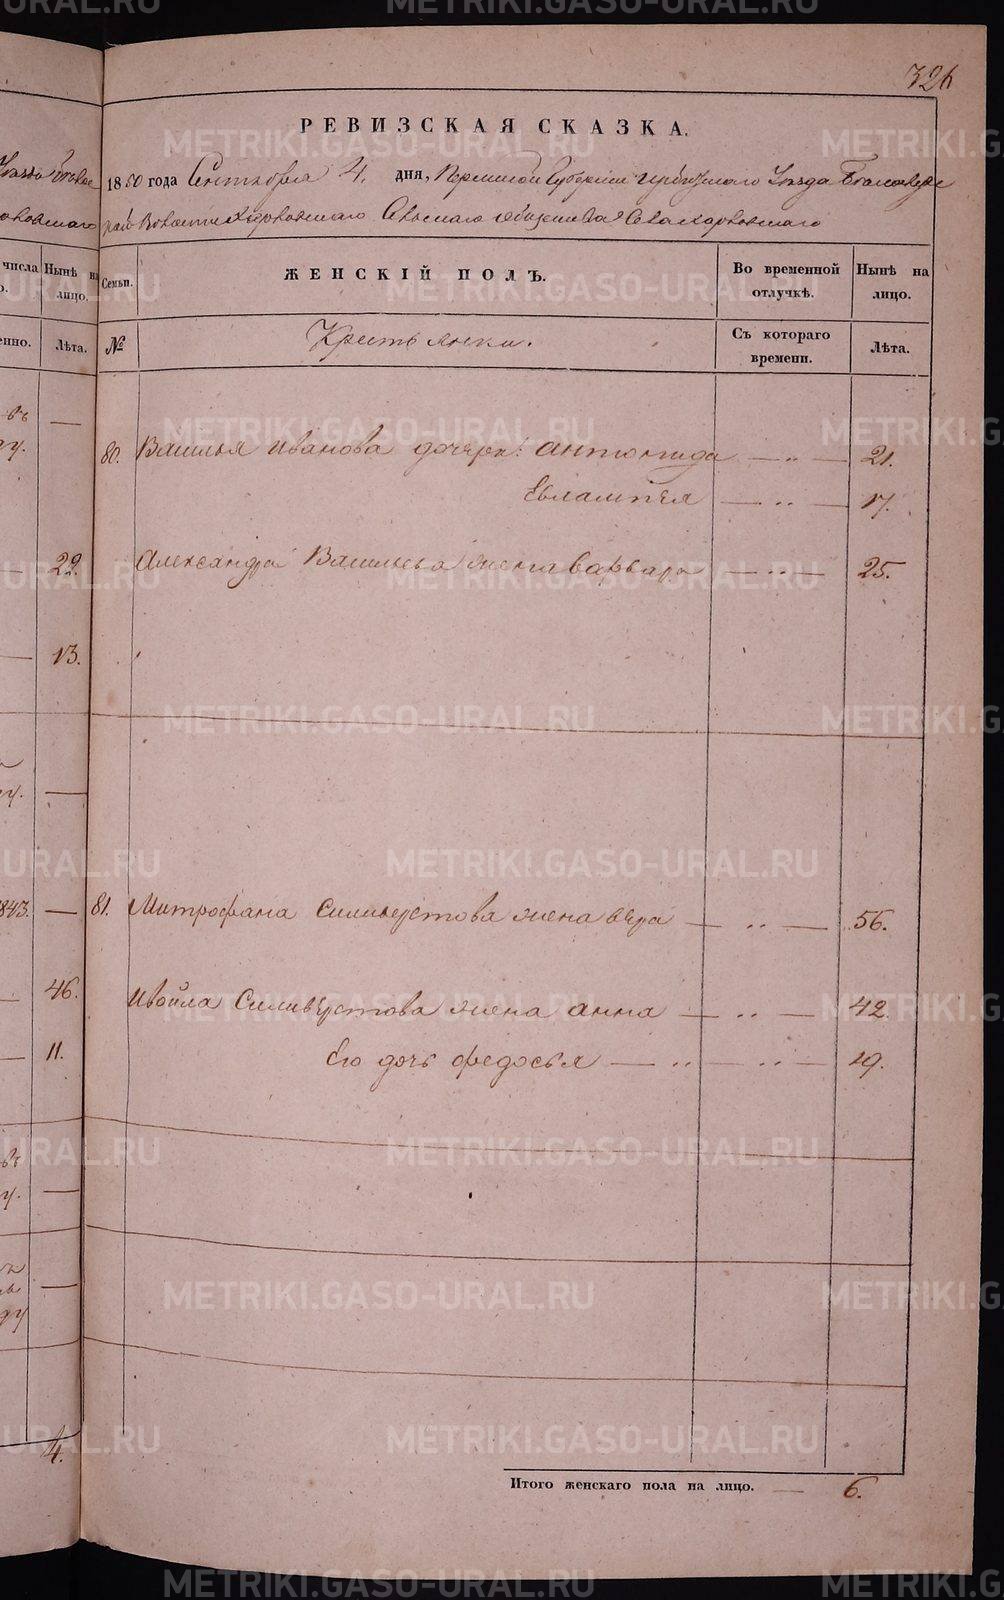 326
РЕВИЗСКАЯ СКАЗКА.
1850 года Сентября 4. дня, Пермской Губернии Ирбитскаго Уезда
Волости Сельскаго общества Села
числа Нынѣ на лицо.
Семьи. ЖЕНСКІЙ ПОЛЪ. Во временной отлучкѣ. Нынѣ на лицо.
Лѣта. № Крестьянки. Съ котораго времени. Лѣта.
80. Василья Иванова дочери: Антонида — „ — 21.
Евлампея — „ — 17.
22. Александра Васильева жена Варвара — „ — 25.
13.
1843. — 81. Митрофана Сильверстова жена Вера — „ — 56.
46. Ивойла Сильверстова жена Анна — „ — 42.
11. Его дочь Федосья — „ — „ — 19.
4.
Итого женскаго пола на лицо. — 6.
METRIKI.GASO-URAL.RU